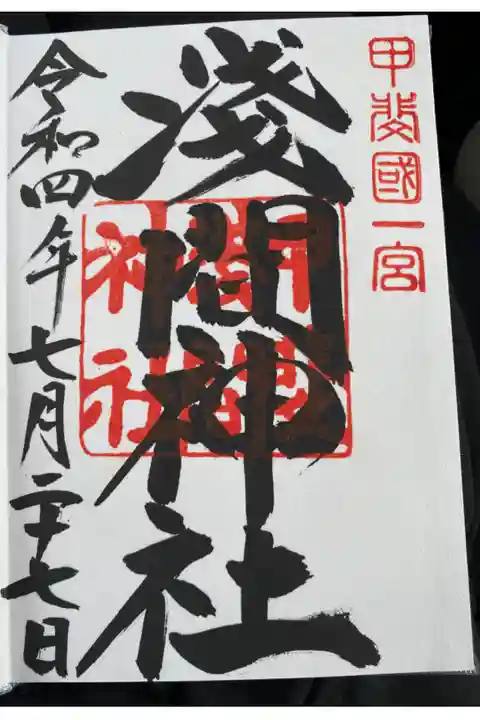 甲斐國一宮
淺間神社
令和四年七月二十七日